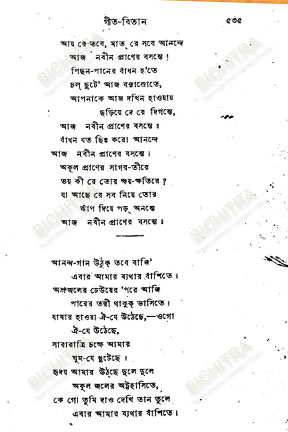 গীত-বিতান ৫৩৫
আয় রে তবে, মাত্ রে সবে আনন্দে
আজ নবীন প্রাণের বসন্তে!
পিছন-পানের বাঁধন হ'তে
চল্ ছুটে' আজ বন্যাস্রোতে,
আপনাকে আজ দখিন হাওয়ায়
ছড়িয়ে দে রে দিগন্তে,
আজ নবীন প্রাণের বসন্তে॥
বাঁধন যত ছিন্ন করো আনন্দে
আজ নবীন প্রাণের বসন্তে।
অকূল প্রাণের সাগর-তীরে
ভয় কী রে তোর ক্ষয়-ক্ষতিরে?
যা আছে রে সব নিয়ে তোর
ঝাঁপ দিয়ে পড়্ অনন্তে
আজ নবীন প্রাণের বসন্তে॥
আনন্দ-গান উঠুক্ তবে বাজি'
এবার আমার ব্যথার বাঁশিতে।
অশ্রুজলের ঢেউয়ের 'পরে আজি
পারের তরী থাকুক্ ভাসিতে।
যাবার হাওয়া ঐ-যে উঠেছে,—ওগো
ঐ-যে উঠেছে,
সারারাত্রি চক্ষে আমার
ঘুম-যে ছুটেছে।
হৃদয় আমার উঠ্ছে দুলে দুলে
অকূল জলের অট্টহাসিতে,
কে গো তুমি দাও দেখি তান তুলে
এবার আমার ব্যথার বাঁশিতে।
BICHITRA